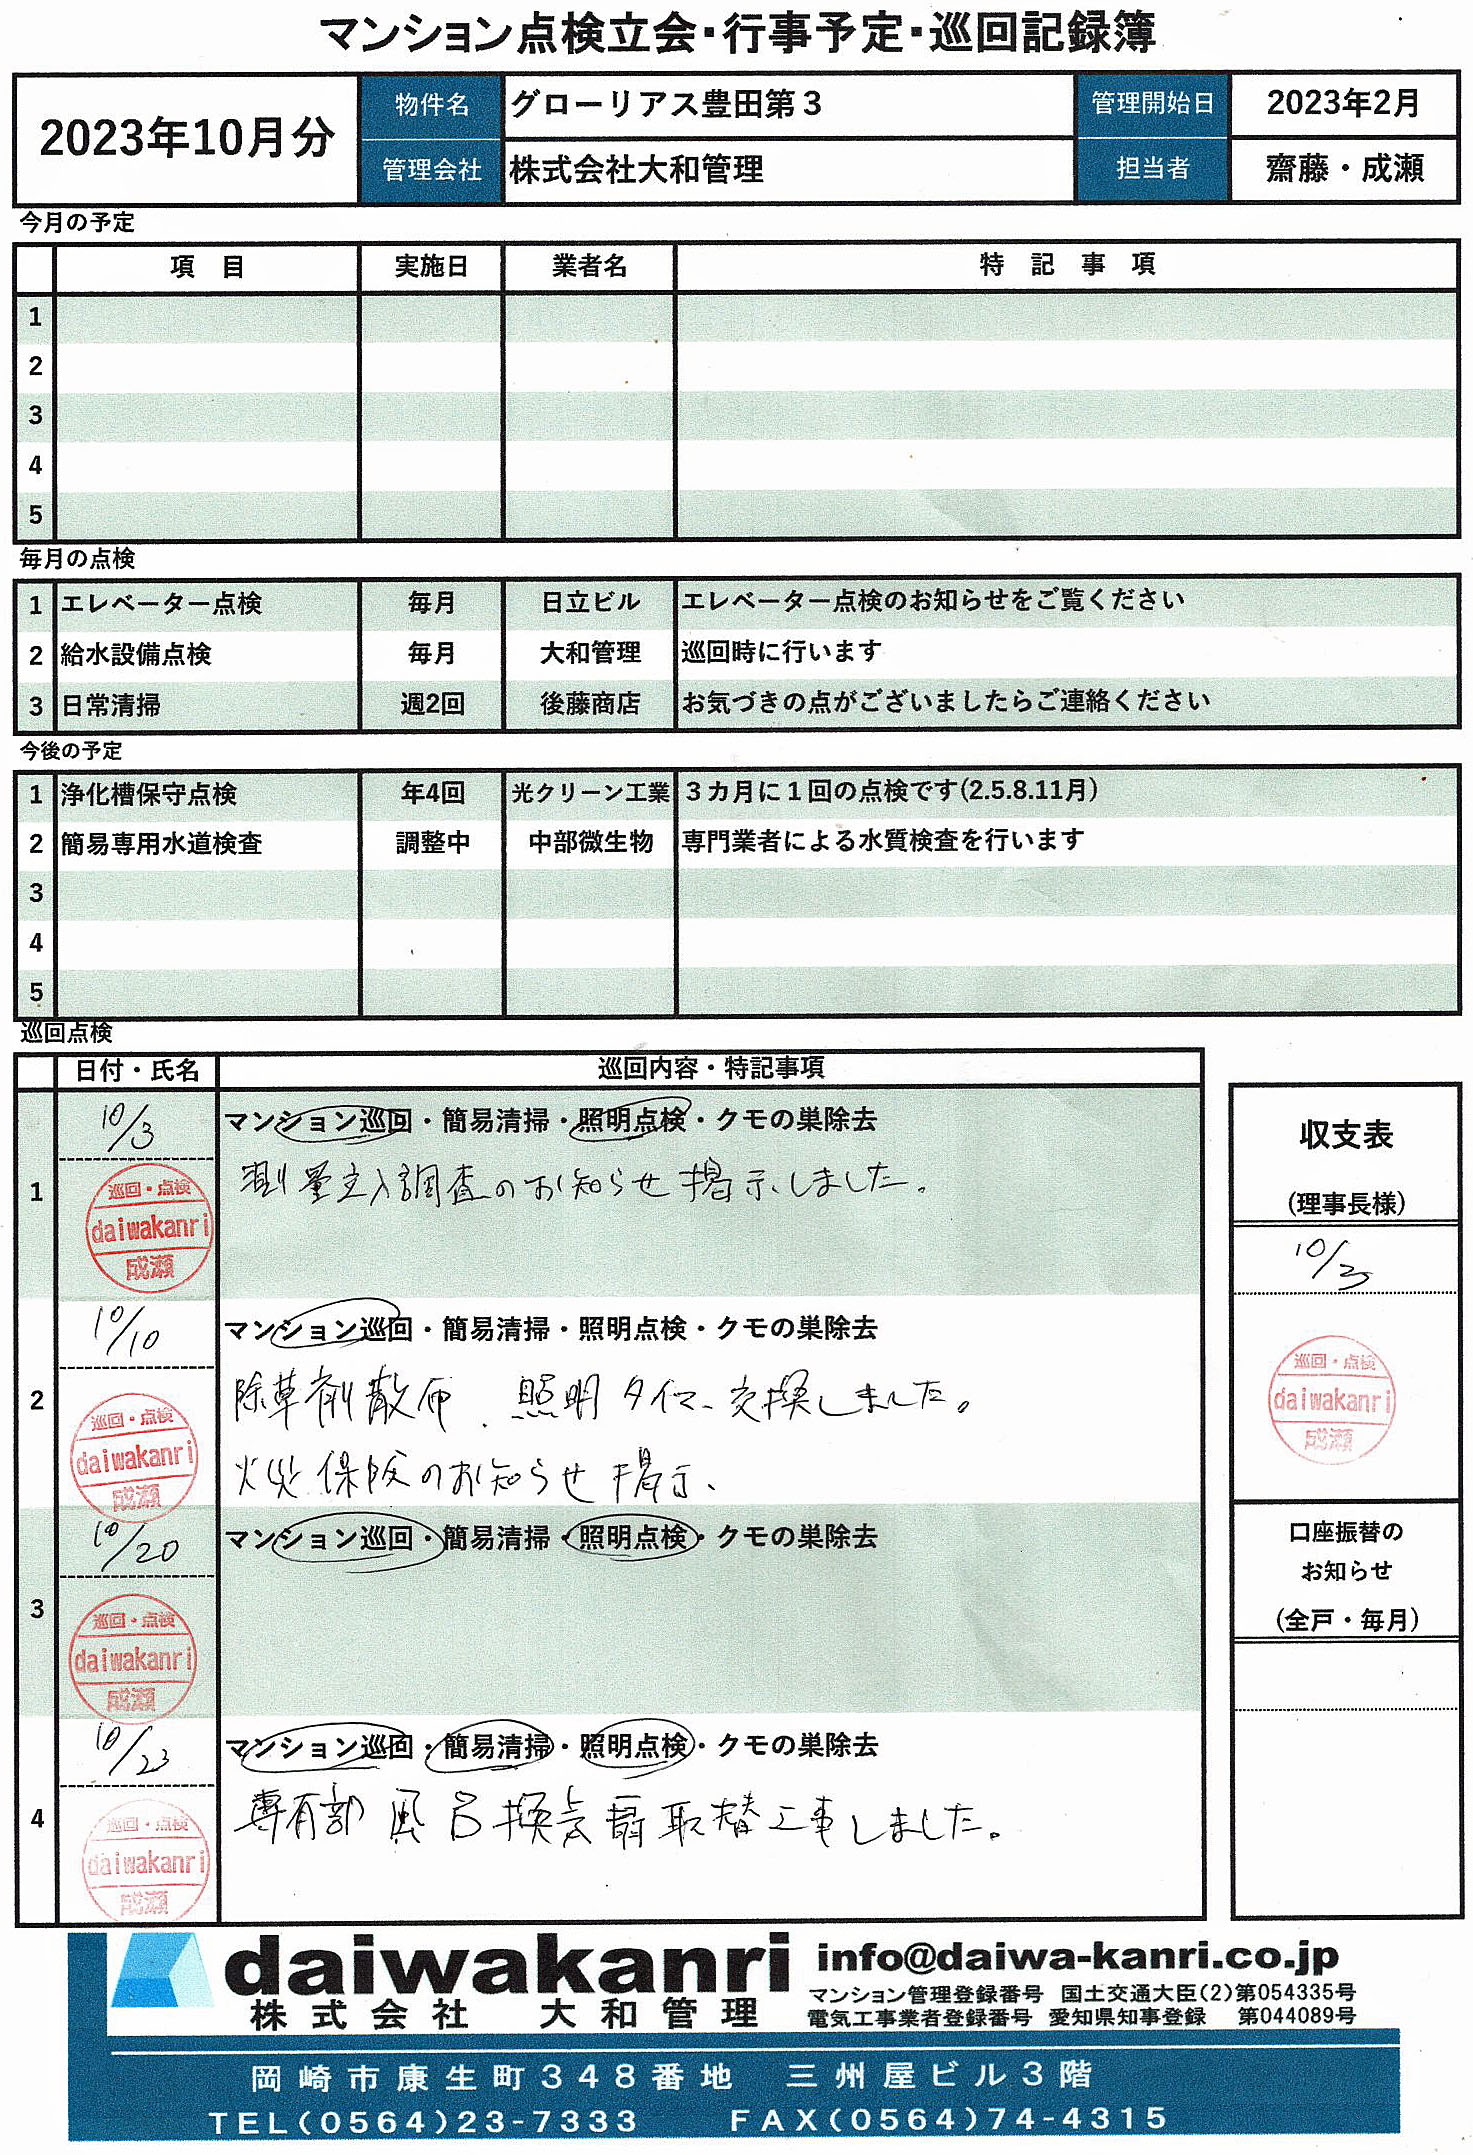 マンション点検立会・行事予定・巡回記録簿
2023年10月分
物件名 グローリアス豊田第３ 管理開始日 2023年2月
管理会社 株式会社大和管理 担当者 齋藤・成瀬
今月の予定
項　目 実施日 業者名 特　記　事　項
1
2
3
4
5
毎月の点検
1 エレベーター点検 毎月 日立ビル エレベーター点検のお知らせをご覧ください
2 給水設備点検 毎月 大和管理 巡回時に行います
3 日常清掃 週2回 後藤商店 お気づきの点がございましたらご連絡ください
今後の予定
1 浄化槽保守点検 年4回 光クリーン工業 ３カ月に１回の点検です(2.5.8.11月)
2 簡易専用水道検査 調整中 中部微生物 専門業者による水質検査を行います
3
4
5
巡回点検
日付・氏名 巡回内容・特記事項
1
10/3
マンション巡回・簡易清掃・照明点検・クモの巣除去
測量立入調査のお知らせ掲示しました。
巡回・点検
daiwakanri
成瀬
2
10/10
マンション巡回・簡易清掃・照明点検・クモの巣除去
除草剤散布、照明タイマー交換しました。
火災保険のお知らせ掲示、
巡回・点検
daiwakanri
成瀬
3
10/20
マンション巡回・簡易清掃・照明点検・クモの巣除去
巡回・点検
daiwakanri
成瀬
4
10/23
マンション巡回・簡易清掃・照明点検・クモの巣除去
専有部風呂換気扇取替工事しました。
巡回・点検
daiwakanri
成瀬
収支表
(理事長様)
巡回・点検
daiwakanri
成瀬
口座振替の
お知らせ
(全戸・毎月)
daiwakanri
株式会社　大和管理
info@daiwa-kanri.co.jp
マンション管理登録番号 国土交通大臣(2)第054335号
電気工事業者登録番号 愛知県知事登録 第044089号
岡崎市康生町３４８番地　三州屋ビル３階
TEL(0564)23-7333 FAX(0564)74-4315